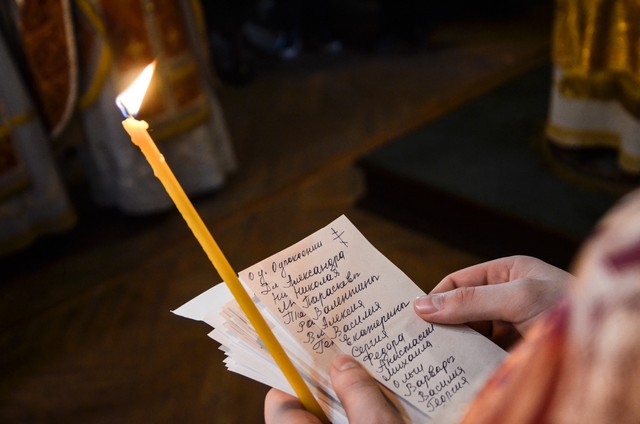 Александра
Николая
Параскевы
Валентины
Алексия
Василия
Екатерины
Сергия
Федора
Анастасии
Михаила
Ольги
Варвары
Василия
Георгия